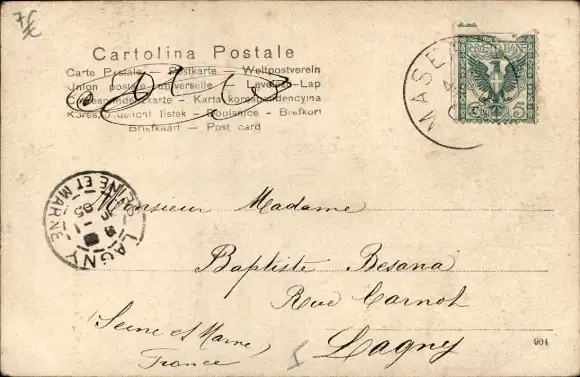 7€
Cartolina Postale
Carte Postale - Postkarte - Weltpostverein
Union postale universelle - Levelezö-Lap
Correspondenzkarte - Karta korespondencyjna
Korespondenční lístek - Dopisnice - Brefkort
Briefkaart - Post card
MASE
POSTE ITALIANE
5
LAGNY
SEINE ET MARNE
05
Monsieur Madame
Baptiste Besana
Rue Carnot
Lagny
(Seine et Marne)
France
904